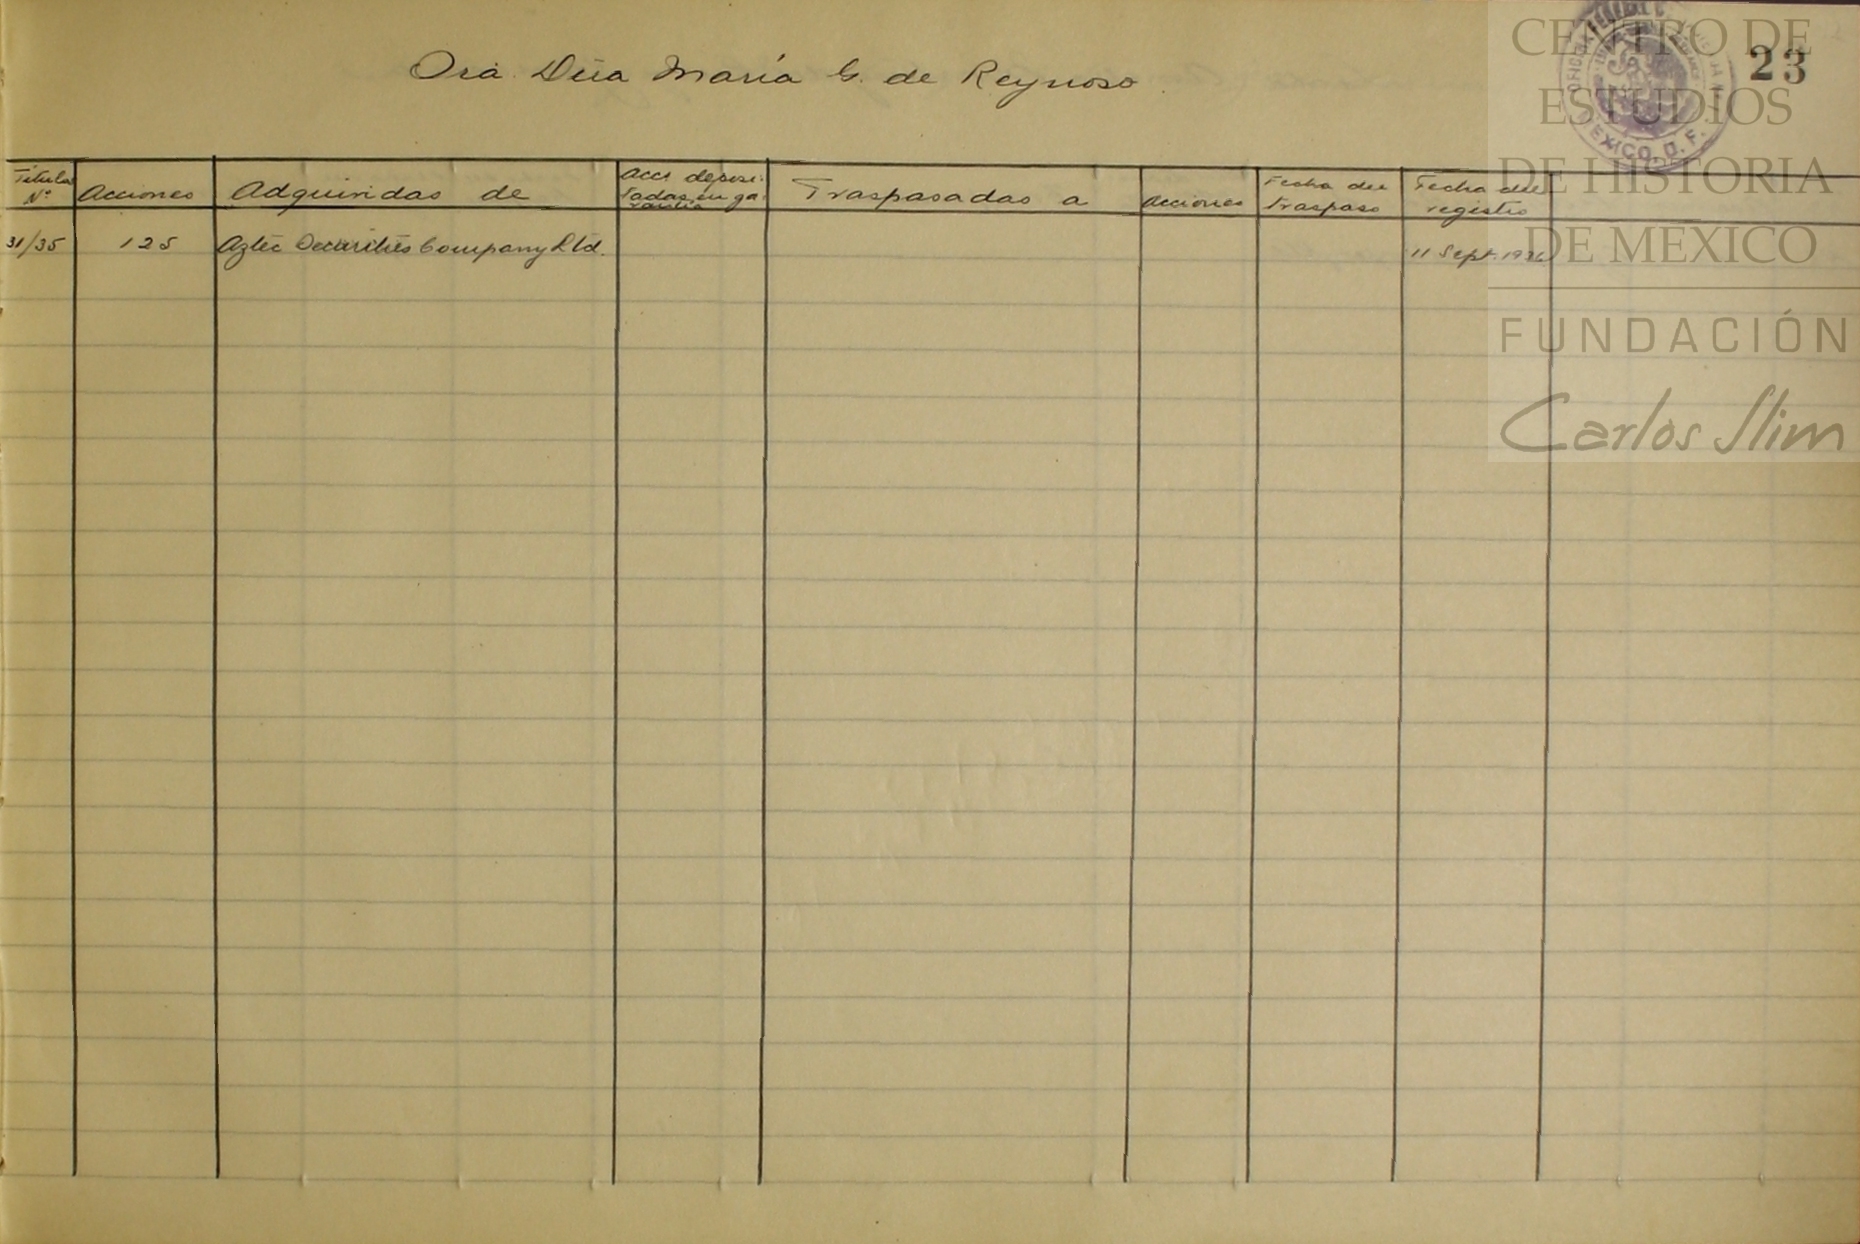 23
Sra. Dña María G. de Reynoso
Titulos Nº
Acciones
Adquiridas de
Accs deposi-
tadas en ga-
rantia
Traspasados a
Acciones
Fecha del
traspaso
Fecha del
registro
31/35 125 Aztec Securities Company Ltd. 11 Sept.
MEXICO, D. F.
CENTRO DE
ESTUDIOS
DE HISTORIA
DE MEXICO
FUNDACIÓN
Carlos Slim